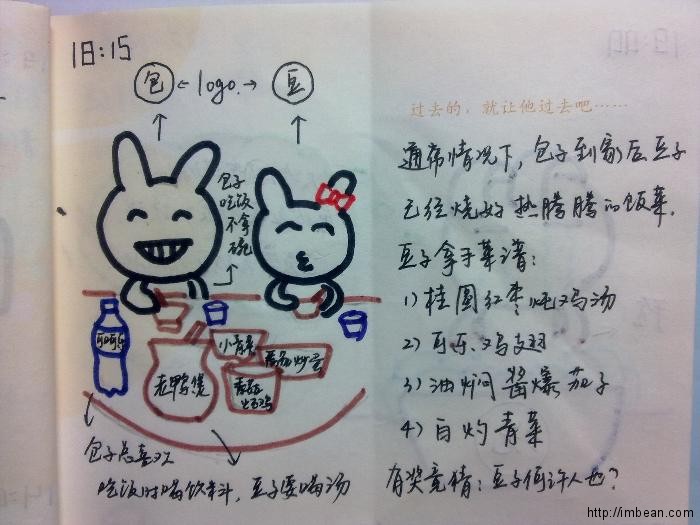 18:15
包 ← logo. → 豆
包子
吃饭
不拿
碗
可口可乐
小青菜
番茄炒蛋
老鸭煲
包子总喜欢
吃饭时喝饮料,豆子要喝汤
过去的,就让他过去吧……
通常情况下,包子到家后豆子
已经烧好热腾腾的饭菜.
豆子拿手菜谱:
1)桂圆红枣炖鸡汤
2)可乐鸡翅
3)油焖酱爆茄子
4)白灼青菜
有奖竞猜:豆子何许人也?
http://imbean.com